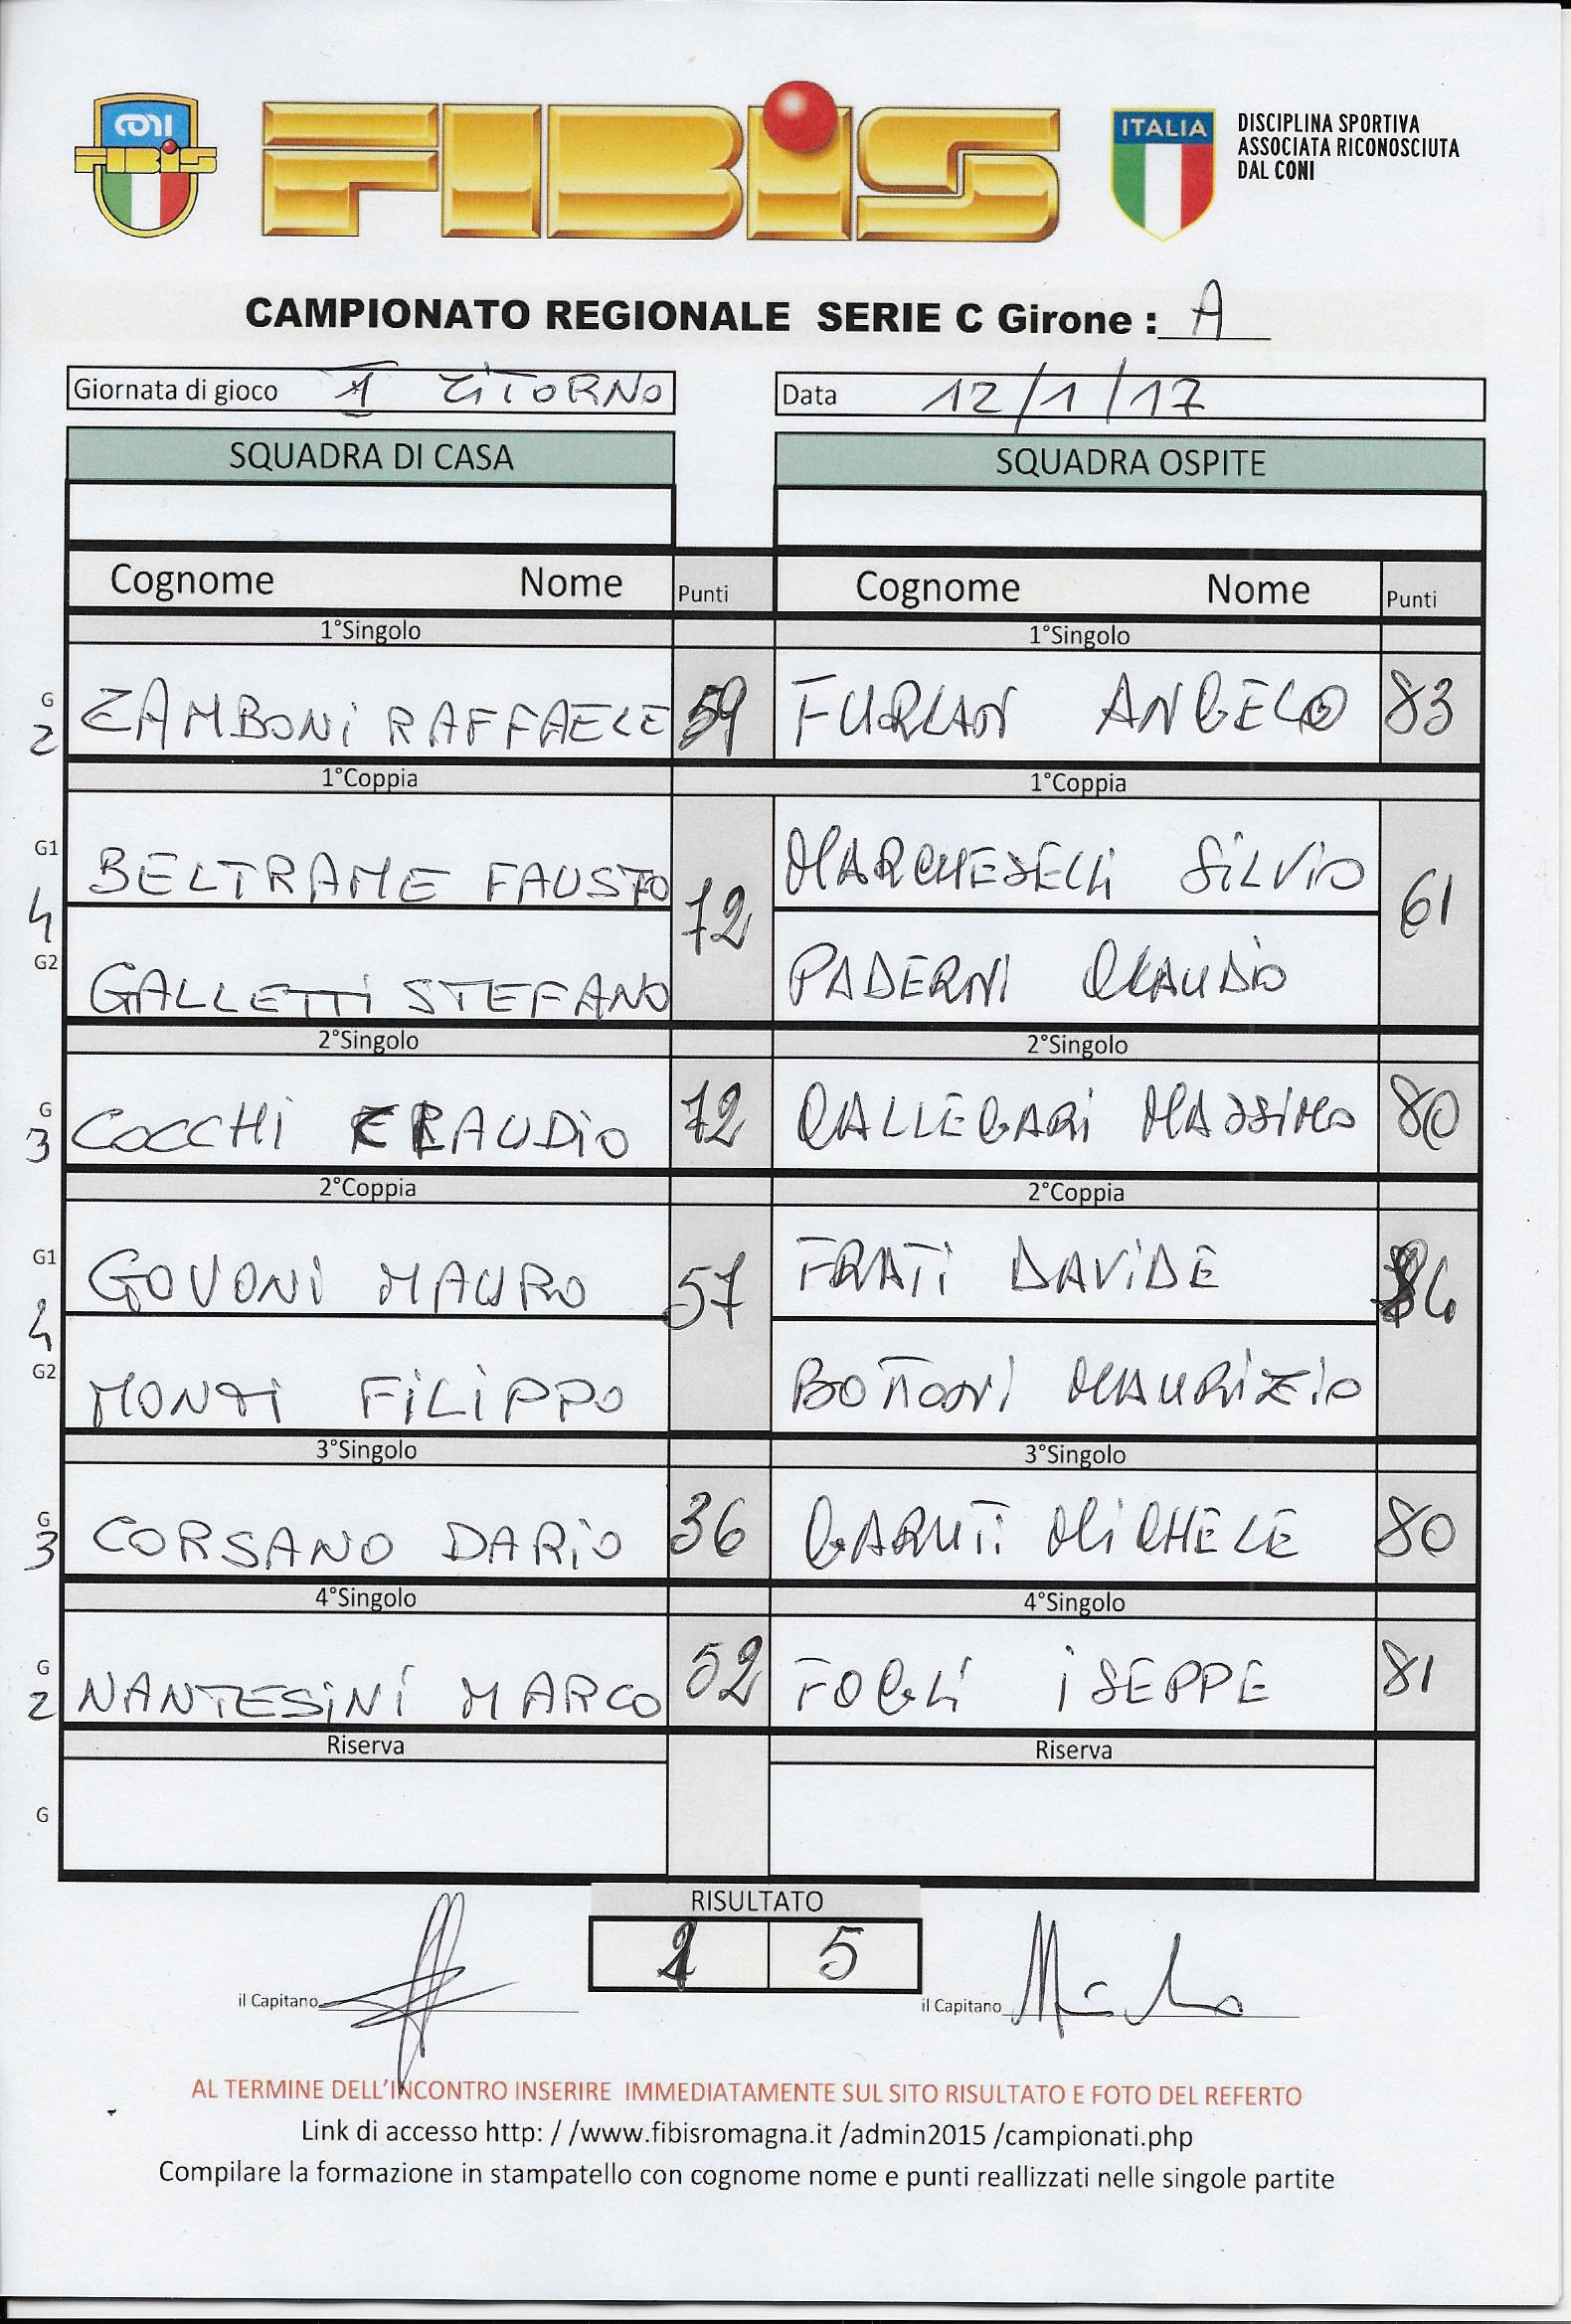 CONI
FIBiS
FIBiS
ITALIA
DISCIPLINA SPORTIVA
ASSOCIATA RICONOSCIUTA
DAL CONI
CAMPIONATO REGIONALE SERIE C Girone : A
Giornata di gioco 1 RITORNO
Data 12/1/17
SQUADRA DI CASA
SQUADRA OSPITE
Cognome Nome Punti
Cognome Nome Punti
1°Singolo
1°Singolo
G 2 ZAMBONI RAFFAELE 59
FURLAN ANGELO 83
1°Coppia
1°Coppia
G1 BELTRAME FAUSTO
4 72
G2 GALLETTI STEFANO
MARCHESELLI SILVIO
61
PADERNI CLAUDIO
2°Singolo
2°Singolo
G 3 COCCHI CLAUDIO 72
CALLEGARI MASSIMO 80
2°Coppia
2°Coppia
G1 GOVONI MAURO
57
G2 MONTI FILIPPO
FRATI DAVIDE
BOTTONI MAURIZIO
3°Singolo
3°Singolo
G 3 CORSANO DARIO 36
GARUTI MICHELE 80
4°Singolo
4°Singolo
G 2 NANTESINI MARCO 52
FOGLI ISEPPE 81
Riserva
Riserva
G
RISULTATO
1 5
il Capitano
il Capitano
AL TERMINE DELL'INCONTRO INSERIRE IMMEDIATAMENTE SUL SITO RISULTATO E FOTO DEL REFERTO
Link di accesso http: / /www.fibisromagna.it /admin2015 /campionati.php
Compilare la formazione in stampatello con cognome nome e punti reallizzati nelle singole partite